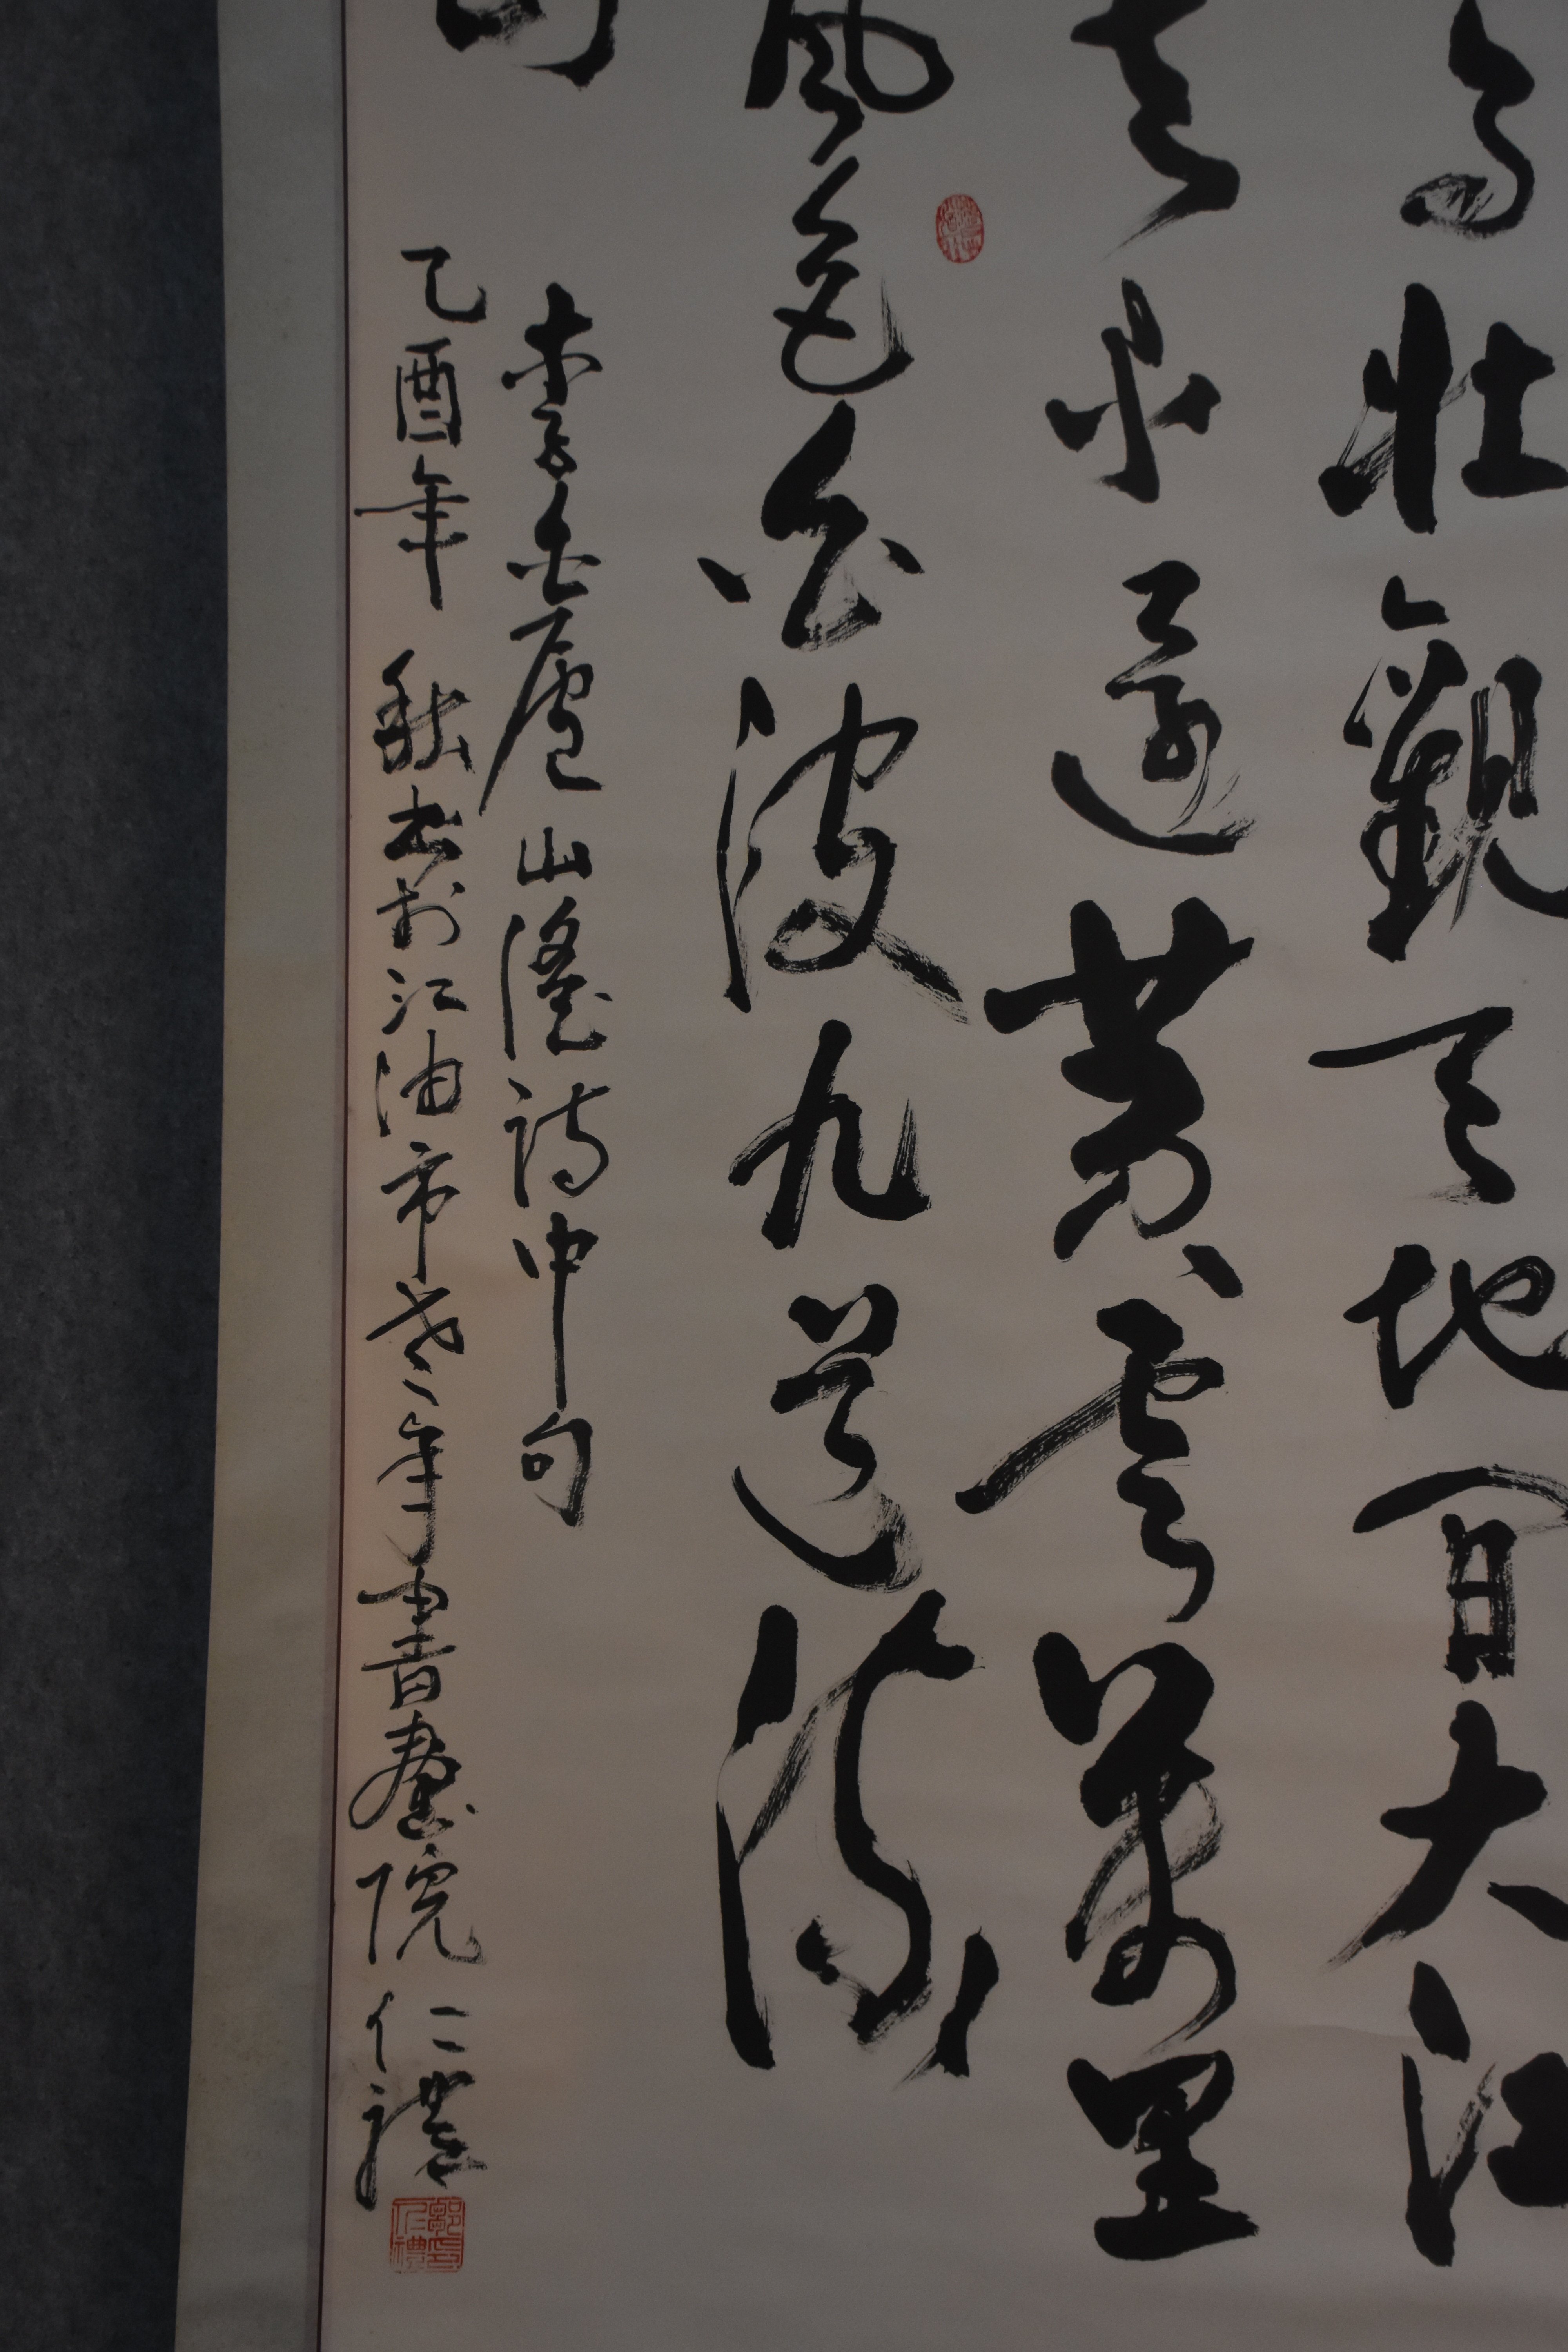 高壯觀天地間大江
去不還黃雲萬里
風色白波九道流
李白廬山謠詩中句
乙酉年秋书於江油市老年書畫院仁禮